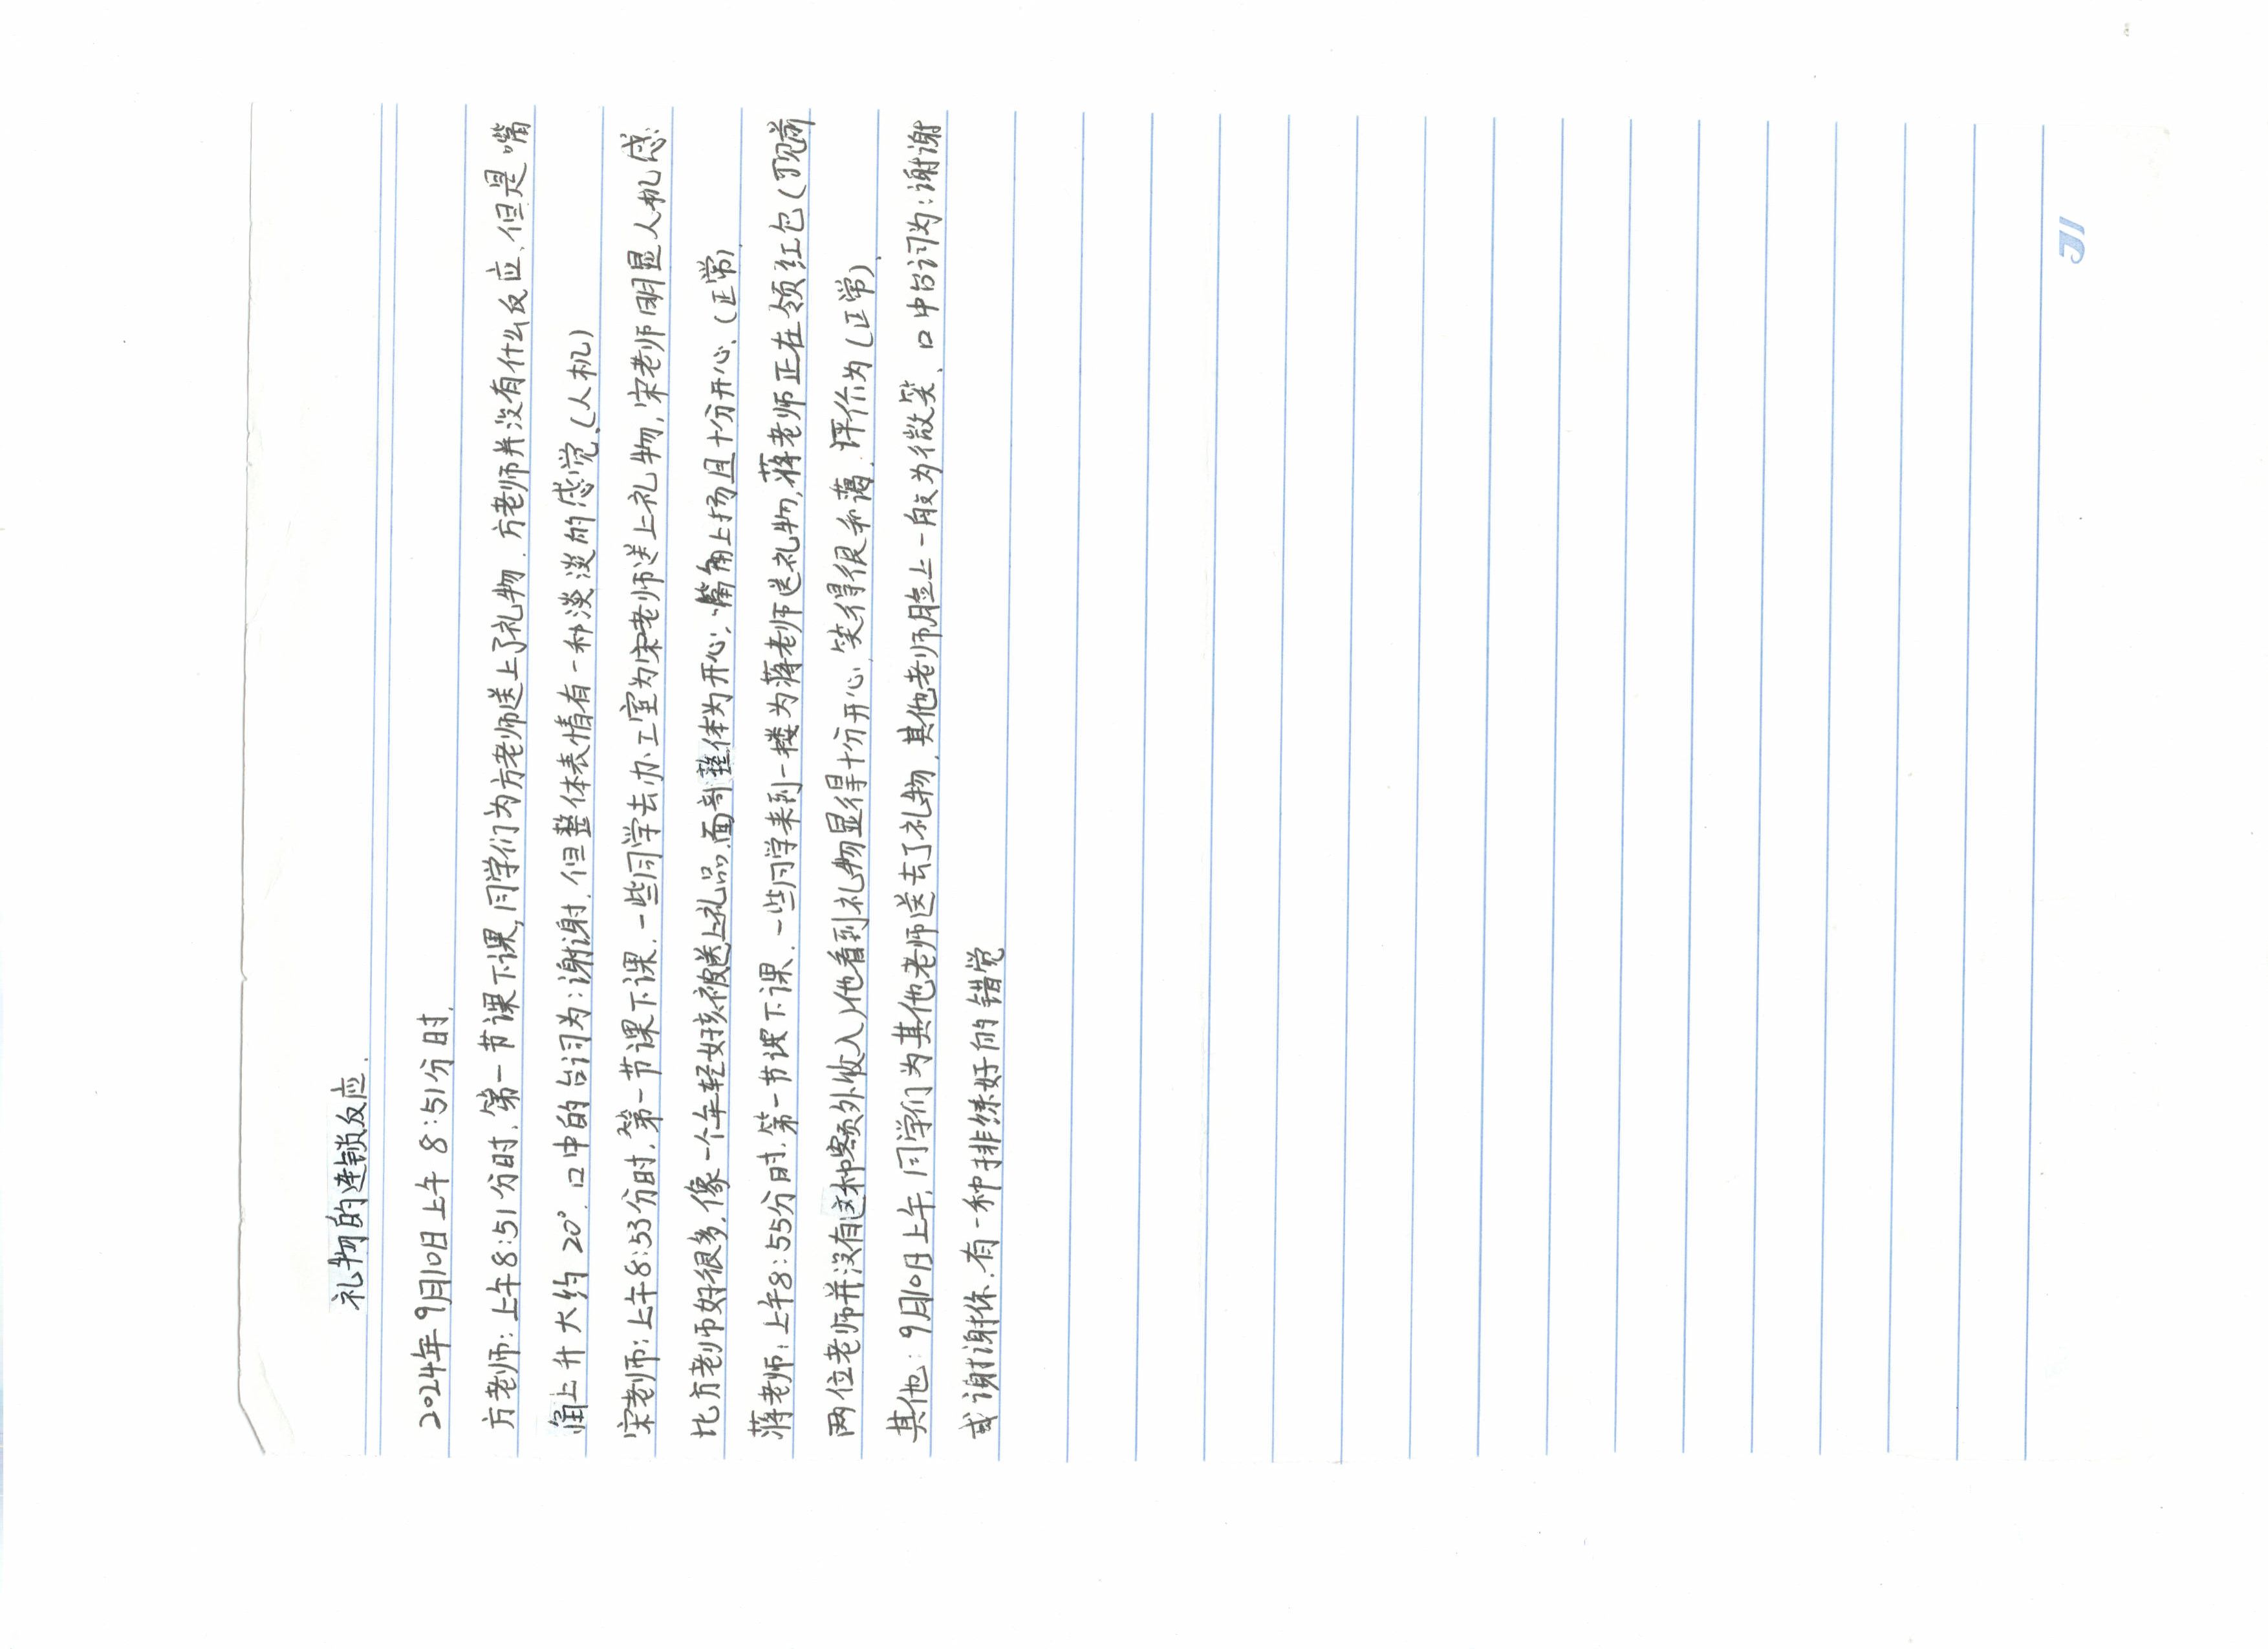 礼物的连锁反应.
2024年9月10日上午 8:51分时.
方老师:上午8:51分时.第一节课下课,同学们为方老师送上了礼物.方老师并没有什么反应、但是嘴
角上升大约20°.口中的台词为:谢谢.但整体表情有一种淡淡的感觉.(人机)
宋老师:上午8:53分时.第一节课下课.一些同学去办工室为宋老师送上礼物,宋老师明显人机感
比方老师好很多.像一个年轻女孩被送上礼品.面部整体为开心、嘴角上扬且十分开心.(正常)
蒋老师:上午8:55分时.第一节课下课、一些同学来到一楼为蒋老师送礼物,蒋老师正在领红包(可见前
两位老师并没有这种额外收入)他看到礼物显得十分开心、笑得很和蔼.评价为(正常)
其他:9月10日上午,同学们为其他老师送去了礼物.其他老师脸上一般为微笑、口中台词为:谢谢
或谢谢你.有一种排练好的错觉